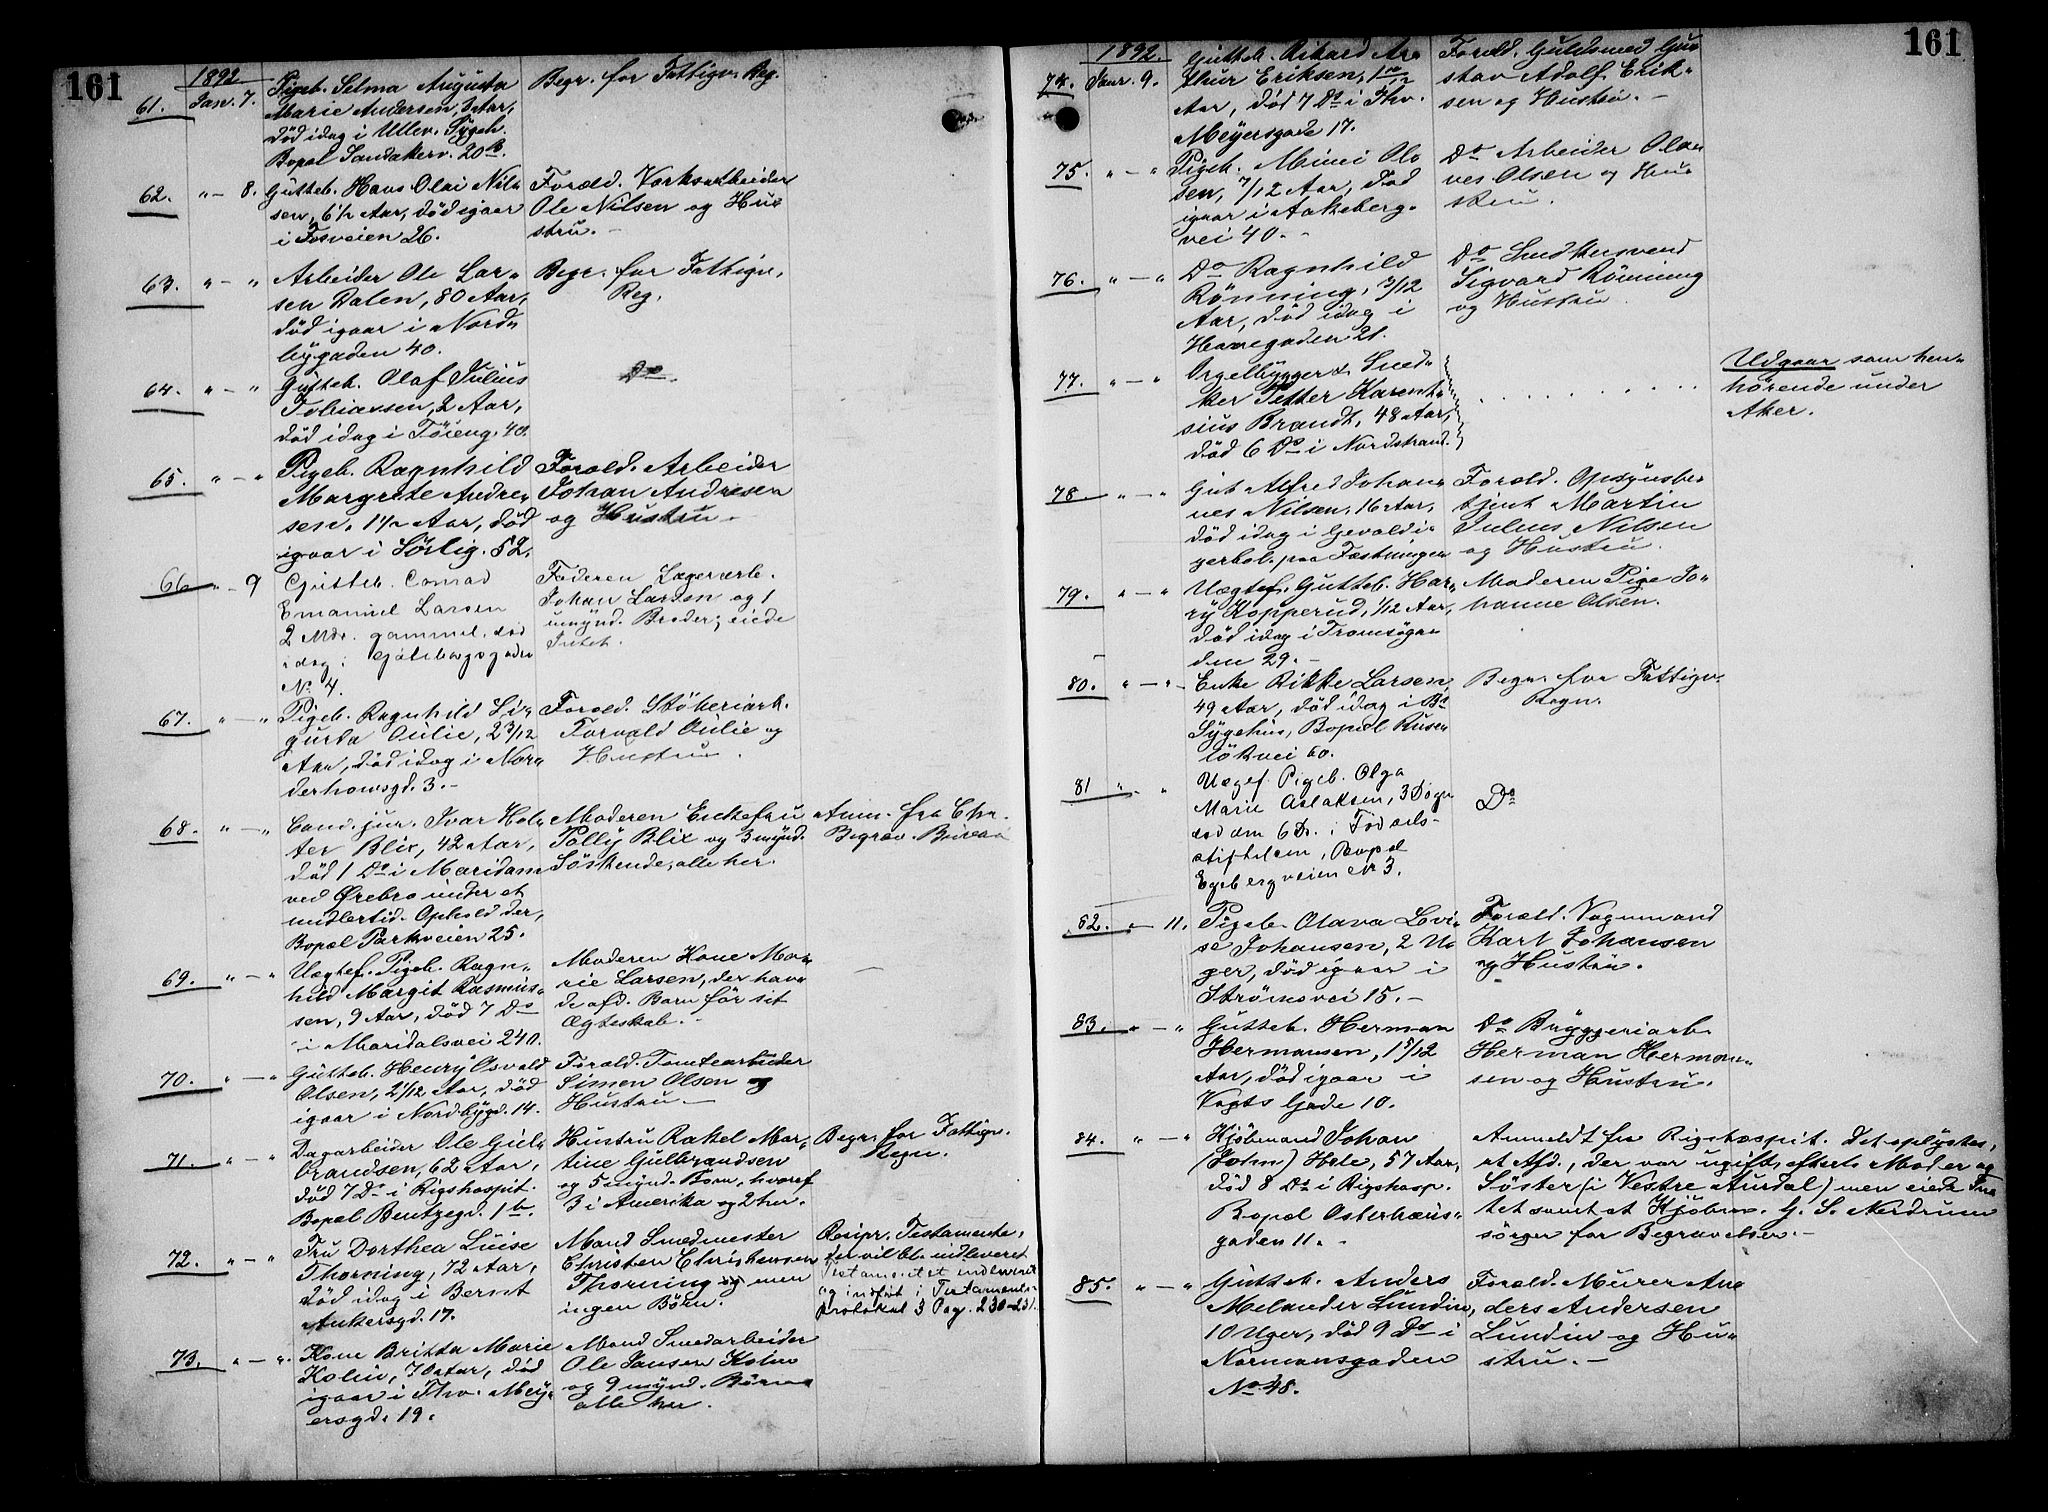 161
1892
61. Jan. 7. Pigeb. Selma Augusta
Marie Andersen, 2 Aar,
død idag i Ullev. Sygeh.
Bopæl Sandakerv. 20 b.
Begr. for Fattigv. Reg.
62. " — 8. Gutteb. Hans Olai Nil-
sen, 6 1/2 Aar, død igaar
i Fosveien 26.
Foræld. Værksarbeider
Ole Nilsen og Hu-
stru. —
63. " — " Arbeider Ole Lar-
sen Dalen, 80 Aar,
død igaar i Nord-
bygaden 40.
Begr. for Fattigv.
Reg.
64. " — " Gutteb. Olaf Julius
Tobiassen, 2 Aar,
død idag i Töieng. 40.
Do.
65. " — " Pigeb. Ragnhild
Margrete Andre-
sen, 1 1/2 Aar, død
igaar i Sörlig. 52.
Foræld. Arbeider
Johan Andresen
og Hustru —
66 " — 9 Gutteb. Conrad
Emanuel Larsen
2 Mdr. gammel, död
idag i Göteborgsgaden
No 4.
Faderen Lagerarb.
Johan Larsen og 1
umynd. Broder; eiede
Intet.
67. " — " Pigeb. Ragnhild Si-
gurda Oulie, 2 3/12
Aar, död idag i Nor-
derhowsgd. 3. —
Foræld. Støberiarb.
Torvald Oulie og
Hustru.
68. " — " Cand. jur. Ivar Hol-
ter Blix, 42 Aar,
død 1 Do i Maridam
ved Ørebro under et
midlertid. Ophold der,
Bopæl Parkveien 25.
Moderen Enkefru
Polly Blix og 3 mynd.
Söskende, alle her.
Anm. fra Chr.
Begrav. Bureau
69. " — " Uægtef. Pigeb. Ragn-
hild Margit Rasmus-
sen, 9 Aar, død 7 Do
i Maridalsvei 240.
Moderen Kone Ma-
rie Larsen, der hav-
de afd. Barn før sit
Ægteskab. —
70. " — " Gutteb. Henry Osvald
Olsen, 2 1/12 Aar, død
igaar i Nordbygd. 14.
Foræld. Tomtearbeider
Simen Olsen og
Hustru. —
71. " — " Dagarbeider Ole Gul-
brandsen, 62 Aar,
död 7 Do i Rigshospit.
Bopæl Bentzegd. 1 b.
Hustru Rakel Mar-
tine Gulbrandsen
og 5 mynd. Børn, hvoraf
3 i Amerika og 2 her.
Begr. for Fattigv.
Regn.
72. " — " Fru Dorthea Luise
Thorning, 72 Aar,
død idag i Bernt
Ankersgd. 17.
Mand Smedmester
Christen Christensen
Thorning og men
ingen Börn.
Resipr. Testamente,
der vil bl. indleveret
Testamentet indleveret
og indført i Testaments-
protokol 3 Pag. 230-231.
73. " — " Kone Britta Marie
Kolin, 70 Aar, død
igaar i Thv. Mey-
ersgd. 19.
Mand Smedarbeider
Ole Jansen Kolin
og 9 mynd. Börn
alle her.
161
1892.
74. Janr. 9. Gutteb. Rikard Ar-
thur Eriksen, 1
Aar, død 7 Do i Thv.
Meyersgade 17.
Foræld. Guldsmed Gus-
tav Adolf Erik-
sen og Hustru. —
75. " — " Pigeb. Mimi Ol-
sen, 7/12 Aar, død
igaar i Aakeberg-
vei 40. —
Do Arbeider Olav-
nes Olsen og Hu-
stru.
76. " — " Do Ragnhild
Rönning, 3/12
Aar, død idag i
Havregaden 21.
Do Smedesvend
Sigvard Rönning
og Hustru.
77. " — " Orgelbygger & Sned-
ker Petter Karent-
sius Brandt, 48 Aar,
død 6 Do i Nordstrand.
Udgaar som hen-
hørende under
Aker.
78. " — " Gut Alfred Johan-
nes Nilsen, 16 Aar,
død idag i Gevaldi-
gerbol. paa Fæstningen
Foræld. Opsynsbe-
tjent Martin
Julius Nilsen
og Hustru.
79. " — " Uægtef. Gutteb. Har-
ry Kopperud, 1/12 Aar,
død idag i Tromsøga-
den 29. —
Moderen Pige Jo-
hanne Olsen.
80. " — " Enke Rikke Larsen,
49 Aar, død idag i By
Sygehus, Bopæl Ruse-
lökvei 60.
Begr. for Fattigv.
Regn.
81 " — " Uægef. Pigeb. Olga
Marie Aslaksen, 3 Dage
död den 6 Ds. i Födsels-
stiftelsen, Bopæl
Egebergveien No 3.
Do
82. " — 11. Pigeb. Olava Lovi-
se Johansen, 2 U-
ger, død igaar i
Strömsvei 15. —
Foræld. Vognmand
Karl Johansen
og Hustru.
83. " — " Gutteb. Herman
Hermansen, 1 5/12
Aar, død igaar i
Vogts Gade 10.
Do Bryggeriarb.
Herman Herman-
sen og Hustru.
84. " — " Kjöbmand Johan
(John) Hole, 57 Aar,
död 8 Ds i Rigshosp.
Bopæl Osterhaus-
gaden 11. —
Anmeldt fra Rigshospit. Det oplystes,
at Afd., der var ugift, efterl. Moder og
Söster (i Vestre Aurdal) men eiede In-
tet samt at Kjöbm. G. S. Nerdrum
sörger for Begravelsen. —
85. " — " Gutteb. Anders
Melander Lundin,
10 Uger, død 9 Do i
Normansgaden
No 48.
Foræld. Murer An-
ders Andersen
Lundin og Hu-
stru. —